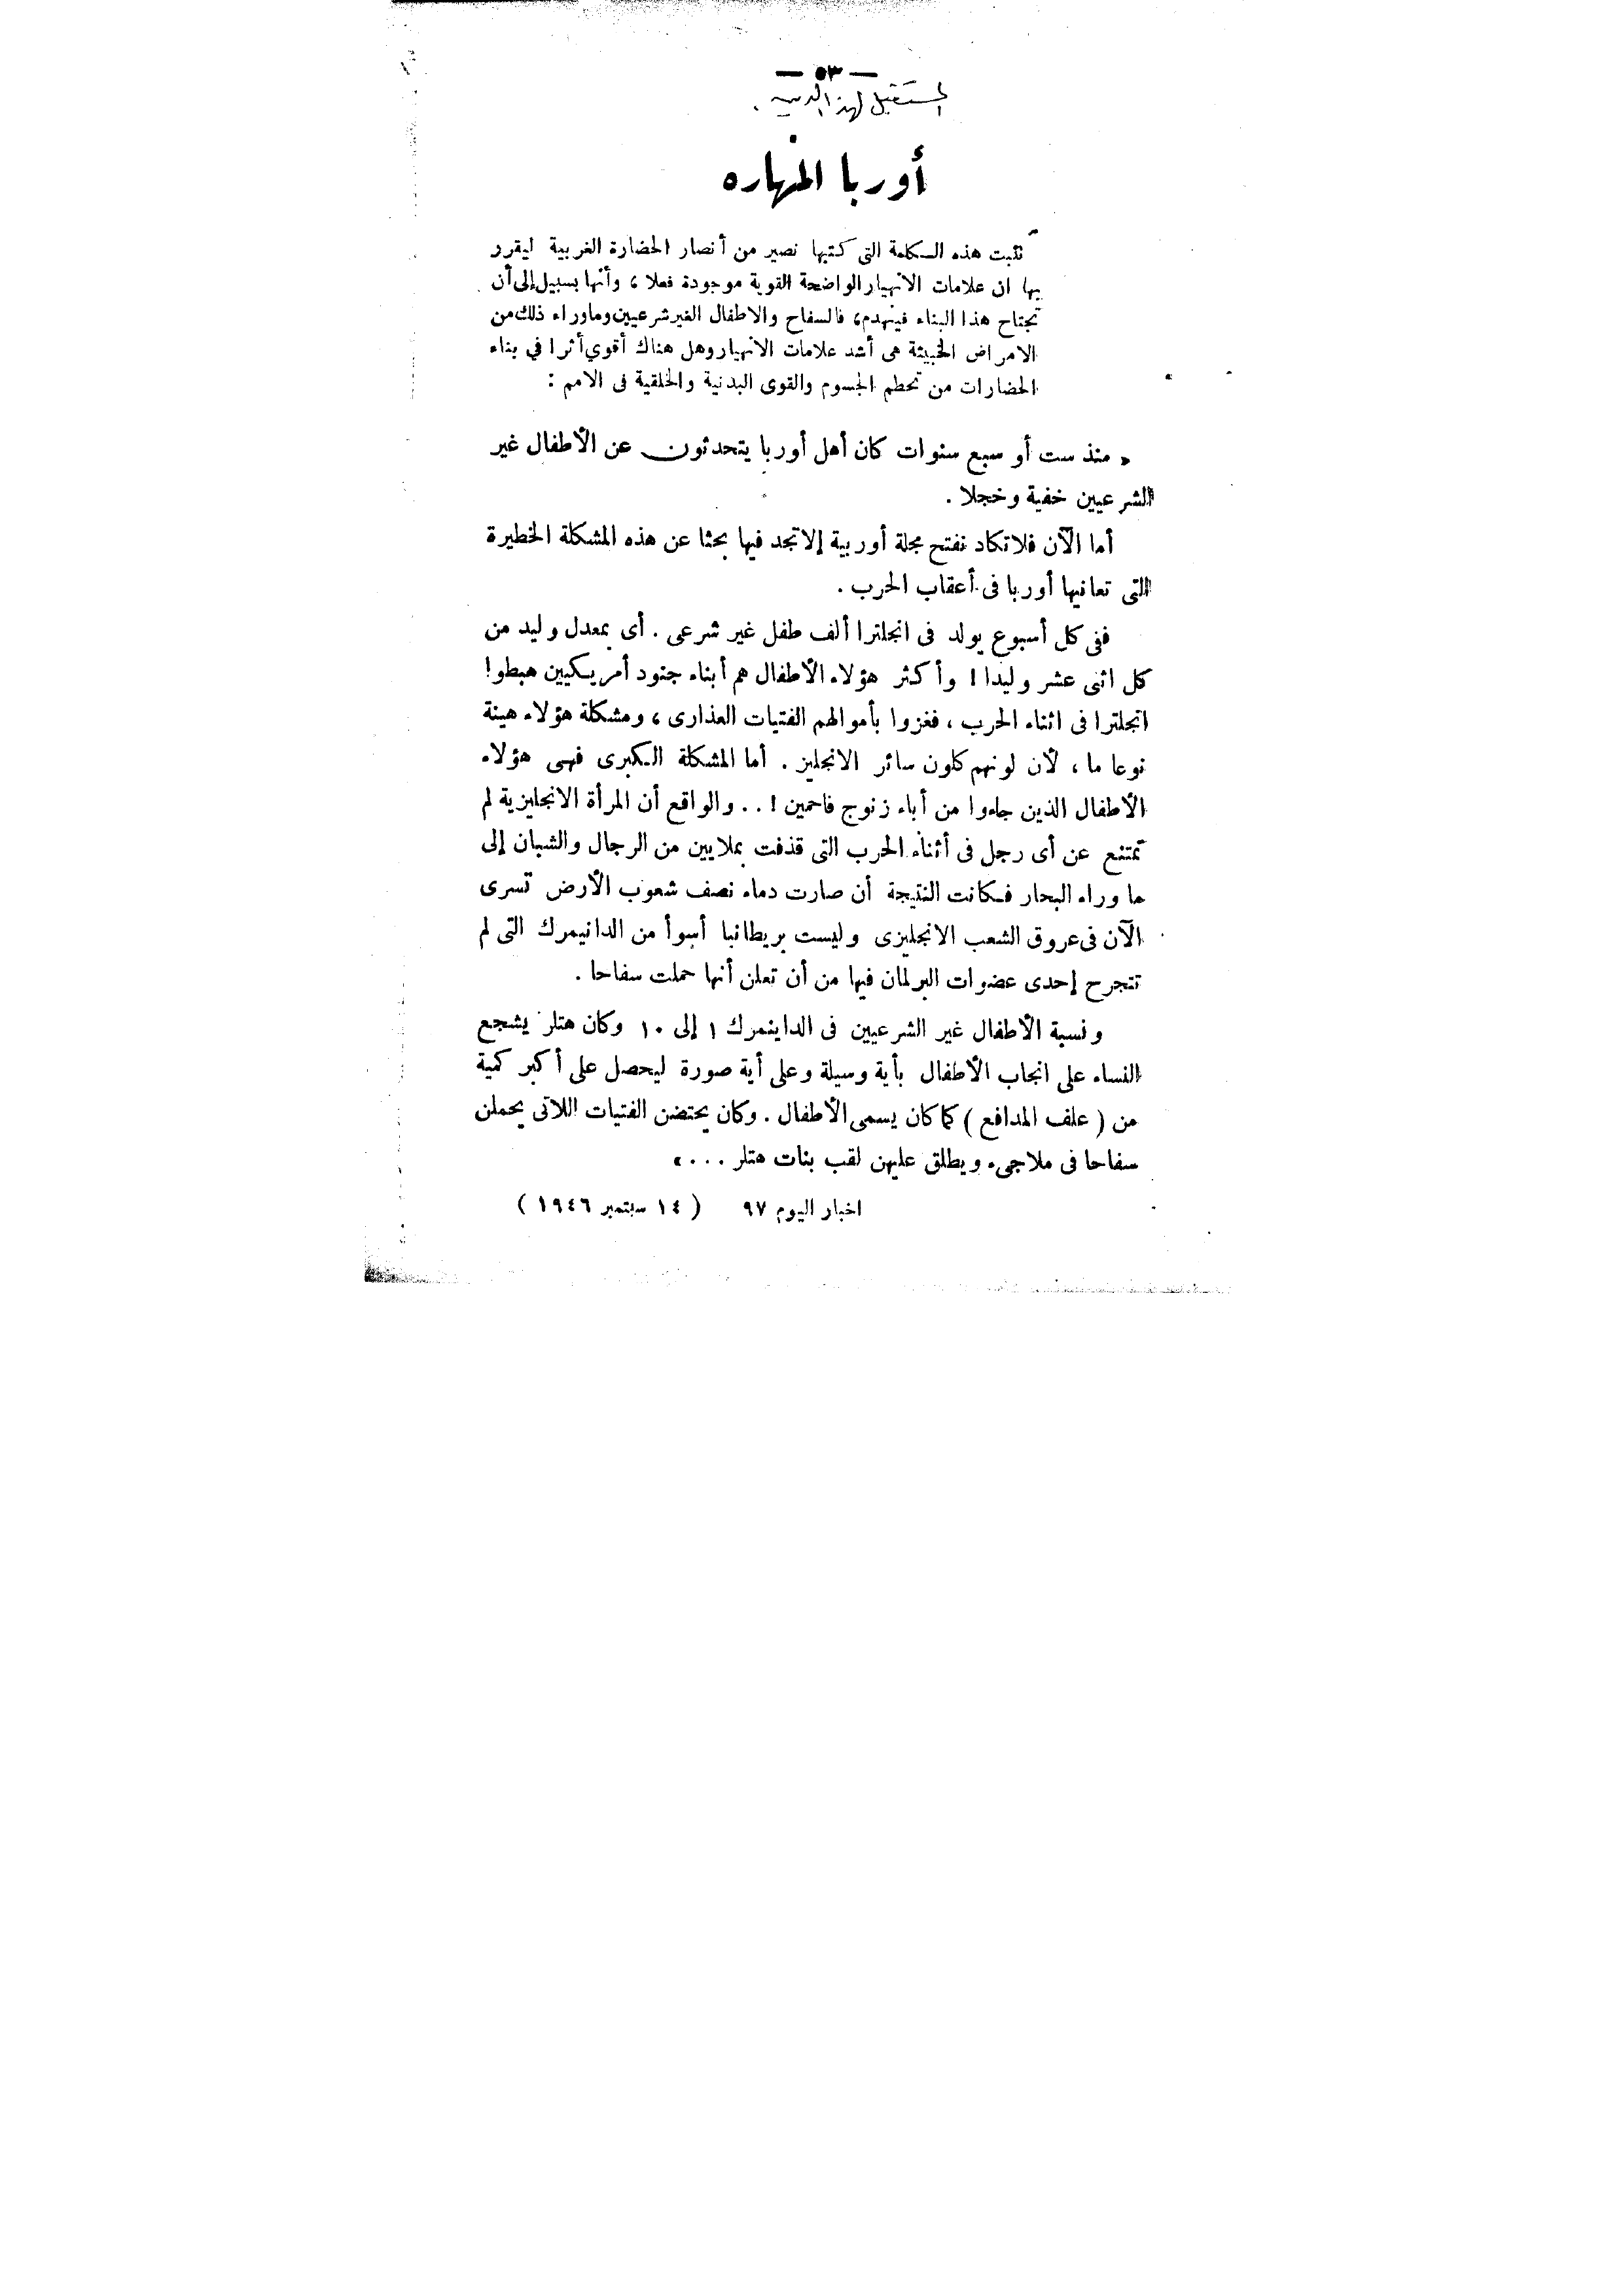 — ٥٣ —
المستقبل لهذا الدين .
أوربا المنهاره
نثبت هذه الكلمة التى كتبها نصير من أنصار الحضارة الغربية ليقرر
بها ان علامات الانهيار الواضحة القوية موجودة فعلا ، وأنها بسبيل إلى أن
تجتاح هذا البناء فينهدم، فالسفاح والاطفال الغير شرعيين وما وراء ذلك من
الامراض الخبيثة هى أشد علامات الانهيار وهل هناك أقوي أثرا في بناء
الحضارات من تحطم الجسوم والقوى البدنية والخلقية فى الامم :
« منذ ست أو سبع سنوات كان أهل أوربا يتحدثون عن الأطفال غير
الشرعيين خفية وخجلا .
أما الآن فلا تكاد نفتح مجلة أوربية إلا تجد فيها بحثا عن هذه المشكلة الخطيرة
التى تعانيها أوربا فى أعقاب الحرب .
ففى كل أسبوع يولد فى انجلترا ألف طفل غير شرعى . أى بمعدل وليد من
كل اثنى عشر وليدا ! وأكثر هؤلاء الأطفال هم أبناء جنود أمريكيين هبطوا
انجلترا فى اثناء الحرب ، فغزوا بأموالهم الفتيات العذارى ، ومشكلة هؤلاء هينة
نوعا ما ، لأن لونهم كلون سائر الانجليز . أما المشكلة الكبرى فهى هؤلاء
الأطفال الذين جاءوا من أباء زنوج فاحمين ! . . والواقع أن المرأة الانجليزية لم
تمتنع عن أى رجل فى أثناء الحرب التى قذفت بملايين من الرجال والشبان إلى
ما وراء البحار فكانت النتيجة أن صارت دماء نصف شعوب الأرض تسرى
الآن فى عروق الشعب الانجليزى وليست بريطانيا أسوأ من الدانيمرك التى لم
تتجرح إحدى عضوات البرلمان فيها من أن تعلن أنها حملت سفاحا .
ونسبة الأطفال غير الشرعيين فى الداينمرك ١ إلى ١٠ وكان هتلر يشجع
النساء على انجاب الأطفال بأية وسيلة وعلى أية صورة ليحصل على أكبر كمية
من ( علف المدافع ) كما كان يسمى الأطفال . وكان يحتضن الفتيات اللاتى يحملن
سفاحا فى ملاجىء ويطلق عليهن لقب بنات هتلر . . . »
اخبار اليوم ٩٧ ( ١٤ سبتمبر ١٩٤٦ )